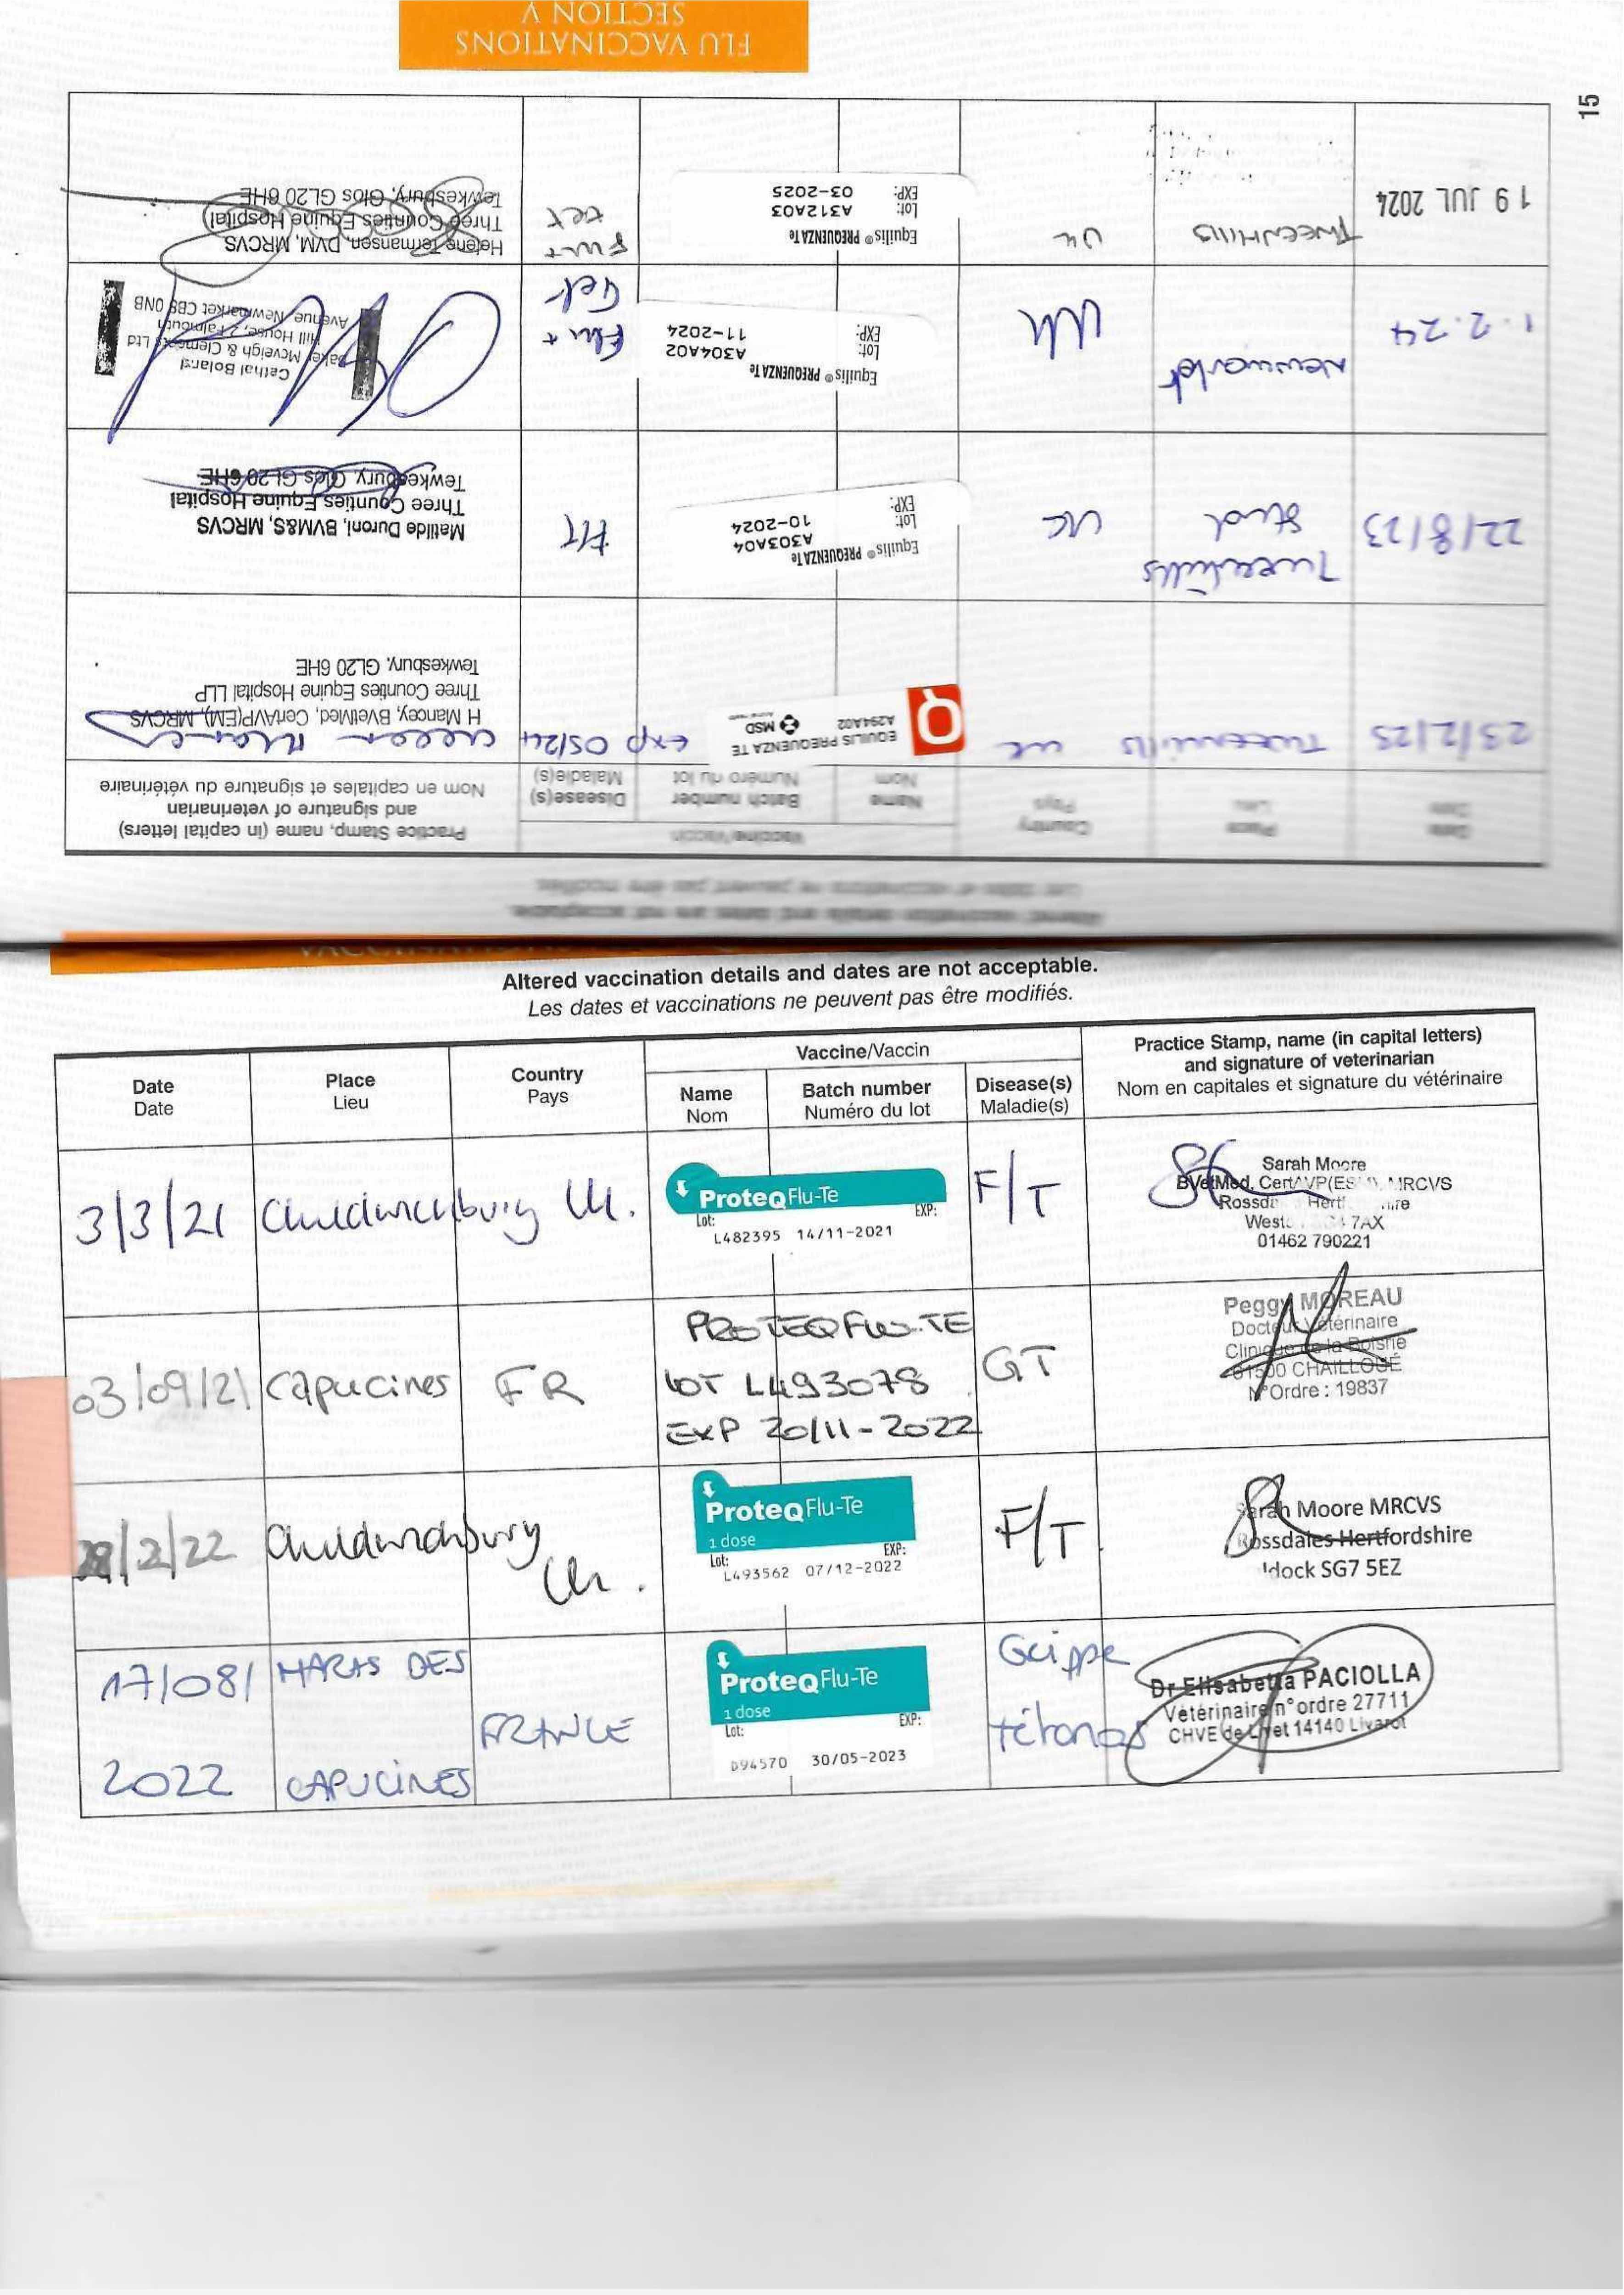 FLU VACCINATIONS
SECTION V
15
Altered vaccination details and dates are not acceptable.
Les dates et vaccinations ne peuvent pas être modifiés.
Date
Date
Place
Lieu
Country
Pays
Vaccine/Vaccin
Name
Nom
Batch number
Numéro du lot
Disease(s)
Maladie(s)
Practice Stamp, name (in capital letters)
and signature of veterinarian
Nom en capitales et signature du vétérinaire
23/2/23
Tweenhills
UK
EQUILIS PREQUENZA TE
A294A02
MSD
exp 05/24
H Mancey, BVetMed, CertAVP(EM), MRCVS
Three Counties Equine Hospital LLP
Tewkesbury, GL20 6HE
22/8/23
Tweenhills
Stud
UK
Equilis® PREQUENZA Te
Lot: A303A04
EXP: 10-2024
F/T
Matilde Duroni, BVM&S, MRCVS
Three Counties Equine Hospital
Tewkesbury, Glos GL20 6HE
1.2.24
Newmarket
UK
Equilis® PREQUENZA Te
Lot: A304A02
EXP: 11-2024
Flu +
Tet
Cathal Boland
Baker Mcveigh & Clements Ltd
Hill House, Falmouth
Avenue, Newmarket CB8 0NB
19 JUL 2024
Tweenhills
UK
Equilis® PREQUENZA Te
Lot: A312A03
EXP: 03-2025
Flu +
tet
Helene Termansen, DVM, MRCVS
Three Counties Equine Hospital
Tewkesbury, Glos GL20 6HE
Altered vaccination details and dates are not acceptable.
Les dates et vaccinations ne peuvent pas être modifiés.
Date
Date
Place
Lieu
Country
Pays
Vaccine/Vaccin
Name
Nom
Batch number
Numéro du lot
Disease(s)
Maladie(s)
Practice Stamp, name (in capital letters)
and signature of veterinarian
Nom en capitales et signature du vétérinaire
3/3/21
Childwickbury
UK.
ProteqFlu-Te
Lot: EXP:
L482395 14/11-2021
F/T
Sarah Moore
BVetMed, CertAVP(ES MRCVS
7AX
01462 790221
03/09/21
Capucines
FR
PROTEQFLU.TE
LOT L493078
EXP 20/11-2022
GT
Peggy MOREAU
Docteur Vétérinaire
Clinique de la Boisrie
61500 CHAILLOUÉ
N°Ordre : 19837
/2/22
Childwickbury
UK.
ProteqFlu-Te
1 dose
Lot: EXP:
L493562 07/12-2022
F/T
Sarah Moore MRCVS
Rossdales Hertfordshire
ldock SG7 5EZ
17/08/
2022
HARAS DES
CAPUCINES
FRANCE
ProteqFlu-Te
1 dose
Lot: EXP:
D94570 30/05-2023
Grippe
tétanos
Dr Elisabetta PACIOLLA
Vétérinaire n°ordre 27711
CHVE de Livet 14140 Livarot